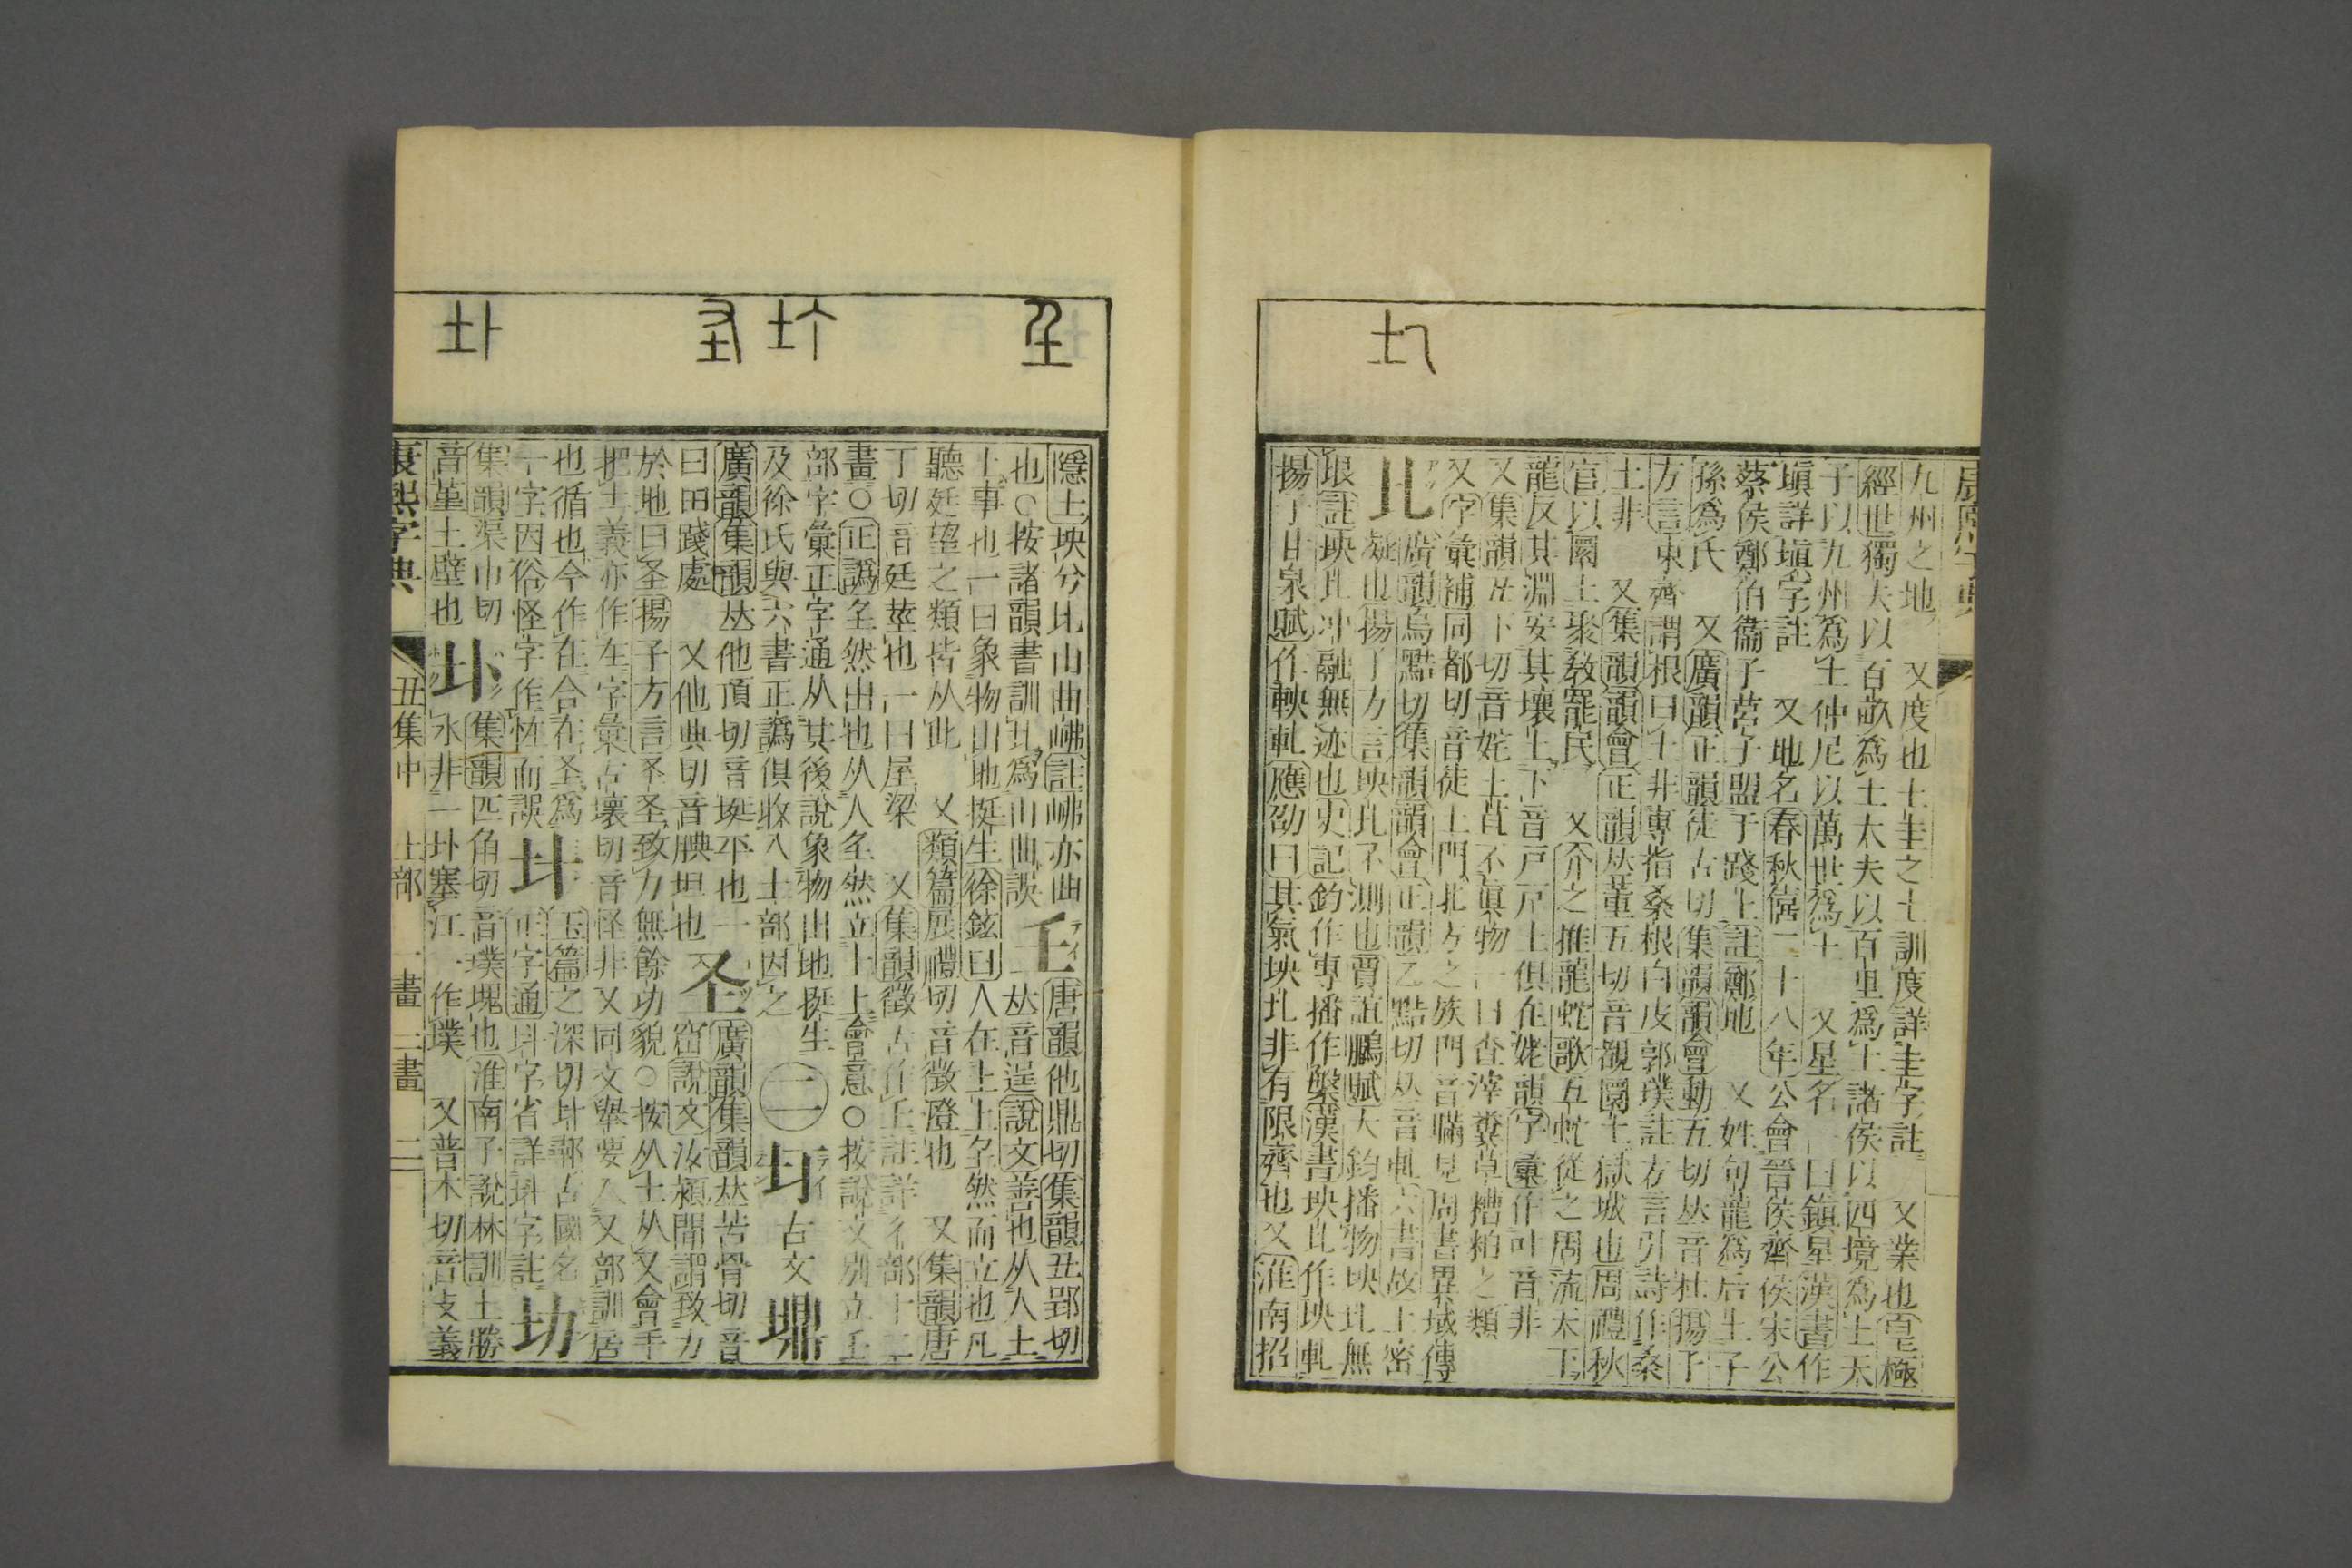 九州之地 又度也土圭之土訓度詳圭字註 又業也皇極
經世獨夫以百畝爲土大夫以百里爲土諸侯以四境爲土天
子以九州爲土仲尼以萬世爲土 又星名一曰鎭星漢書作
塡詳塡字註 又地名春秋僖二十八年公會晉侯齊侯宋公
蔡侯鄭伯衞子莒子盟于踐土註鄭地 又姓句龍爲后土子
孫爲氏 又廣韻正韻徒古切集韻韻會動五切𠀤音杜揚子
方言東齊謂根曰土非專指桑根白皮郭璞註方言引詩作桑
土非 又集韻韻會正韻𠀤董五切音覩圜土獄城也周禮秋
官以圜土聚敎罷民 又介之推龍蛇歌五蛇從之周流天下
龍反其淵安其壤土下音戸戸土俱在姥韻字彙作叶音非
又集韻𠀤下切音姹土苴不眞物一曰査滓糞草糟粕之類
又字彙補同都切音徒土門北方之族門音瞞見周書異域傳
圠 廣韻烏黠切集韻韻會正韻乙黠切𠀤音軋六書故土密
凝也揚子方言坱圠不測也賈誼鵩賦大鈞播物坱圠無
垠註坱圠冲融無迹也史記鈞作專播作槃漢書坱圠作坱軋
揚子甘泉賦作軮軋應劭曰其氣坱圠非有限齊也又淮南招
隱士坱兮圠山曲岪註岪亦曲
也○按諸韻書訓圠爲山曲誤 𡈼 唐韻他鼎切集韻丑郢切
𠀤音逞說文善也从人士
士事也一曰象物出地挺生徐鉉曰人在土上𡈼然而立也凡
聽廷望之類皆从此 又類篇展禮切音徵澄也 又集韻唐
丁切音廷莖也一曰屋梁 又集韻徵古作𡈼註詳彳部十二
畫○正譌𡈼然出也从人𡈼然立土上會意○按說文別立𡈼
部字彙正字通从其後說象物出地挺生
及徐氏與六書正譌俱收入土部因之 ㊁ 圢 古文 㙅
廣韻集韻𠀤他頂切音挺平也一
曰田踐處 又他典切音腆坦也 圣 廣韻集韻𠀤苦骨切音
窋說文汝潁閒謂致力
於地曰圣揚子方言圣圣致力無餘功貌○按从土从又會手
把土義亦作左字彙古壞切音怪非又同文舉要入又部訓居
也循也今作在合在圣爲
一字因俗怪字作恠而誤 𡉄 玉篇之深切𡉄鄩古國名
正字通斟字省詳斟字註 圤
集韻渠巾切
音菫土壁也 圤 集韻匹角切音璞塊也淮南子說林訓土勝
水非一圤塞江一作璞 又普木切音攴義
康熙字典
丑集中 土部 一畫 二畫 二